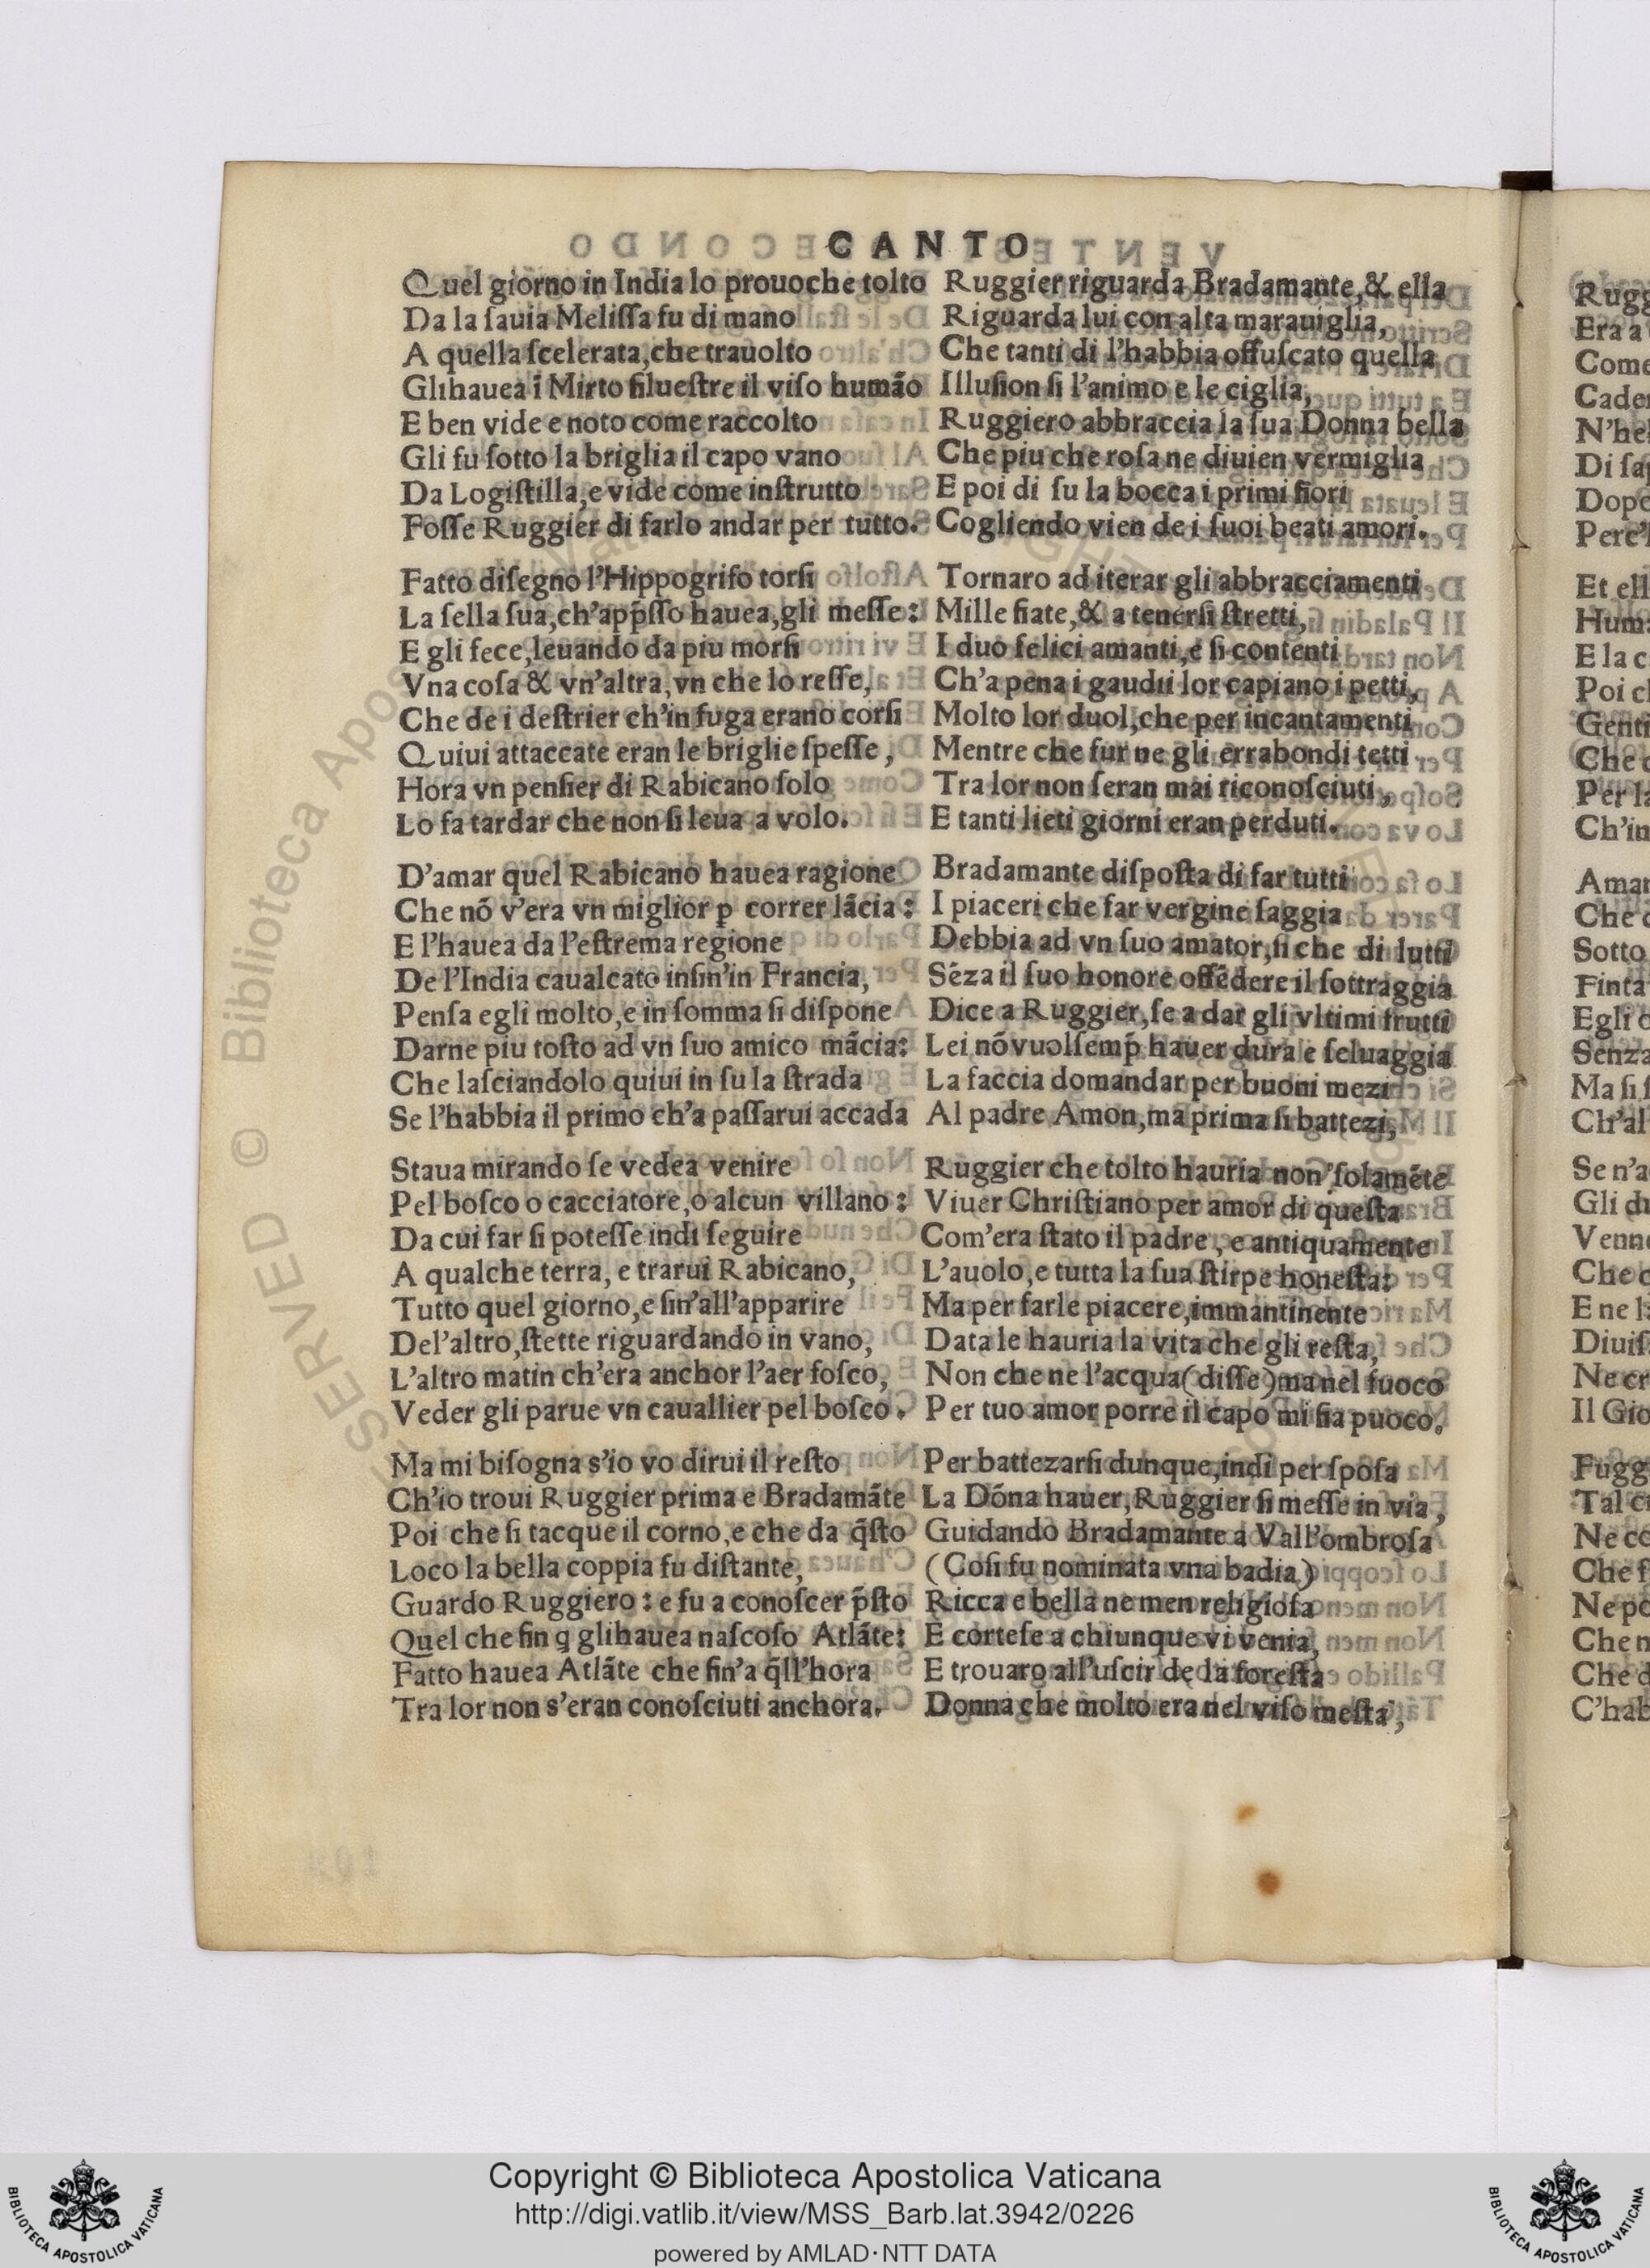 CANTO
Quel giorno in India lo prouo che tolto
Da la ſauia Meliſſa fu di mano
A quella ſcelerata, che trauolto
Gli hauea ĩ Mirto ſilueſtre il viſo humão
E ben vide e noto come raccolto
Gli fu ſotto la briglia il capo vano
Da Logiſtilla, e vide come inſtrutto
Foſſe Ruggier di farlo andar per tutto.
Fatto diſegno l'Hippogrifo torſi
La ſella ſua, ch'app̃ſſo hauea, gli meſſe:
E gli fece, leuando da piu morſi
Vna coſa & vn'altra, vn che lo reſſe,
Che de i deſtrier ch'in fuga erano corſi
Quiui attaccate eran le briglie ſpeſſe,
Hora vn penſier di Rabicano ſolo
Lo fa tardar che non ſi leua a volo.
D'amar quel Rabicano hauea ragione
Che nõ v'era vn miglior ꝑ correr lãcia:
E l'hauea da l'eſtrema regione
De l'India caualcato inſin'in Francia,
Penſa egli molto, e in ſomma ſi diſpone
Darne piu toſto ad vn ſuo amico mãcia:
Che laſciandolo quiui in ſu la ſtrada
Se l'habbia il primo ch'a paſſarui accada
Staua mirando ſe vedea venire
Pel boſco o cacciatore, o alcun villano:
Da cui far ſi poteſſe indi ſeguire
A qualche terra, e trarui Rabicano,
Tutto quel giorno, e ſin'all'apparire
Del'altro, ſtette riguardando in vano,
L'altro matin ch'era anchor l'aer foſco,
Veder gli parue vn cauallier pel boſco.
Ma mi biſogna s'io vo dirui il reſto
Ch'io troui Ruggier prima e Bradamãte
Poi che ſi tacque il corno, e che da q̃ſto
Loco la bella coppia fu diſtante,
Guardo Ruggiero: e fu a conoſcer p̃ſto
Quel che fin q glihauea naſcoſo Atlãte:
Fatto hauea Atlãte che fin'a q̃ll'hora
Tra lor non s'eran conoſciuti anchora.
Ruggier riguarda Bradamante, & ella
Riguarda lui con alta marauiglia,
Che tanti di l'habbia offuſcato quella
Illuſion ſi l'animo e le ciglia,
Ruggiero abbraccia la ſua Donna bella
Che piu che roſa ne diuien vermiglia
E poi di ſu la bocca i primi fiori
Cogliendo vien de i ſuoi beati amori.
Tornaro ad iterar gli abbracciamenti
Mille fiate, & a tenerſi ſtretti,
I duo felici amanti, e ſi contenti
Ch'a pena i gaudii lor capiano i petti,
Molto lor duol, che per incantamenti
Mentre che fur ne gli errabondi tetti
Tra lor non ſeran mai riconoſciuti,
E tanti lieti giorni eran perduti.
Bradamante diſpoſta di far tutti
I piaceri che far vergine ſaggia
Debbia ad vn ſuo amator, ſi che di lutti
Sẽza il ſuo honore offẽdere il ſottraggia
Dice a Ruggier, ſe a dar gli vltimi frutti
Lei nõ vuol ſemp̃ hauer dura e ſeluaggia
La faccia domandar per buoni mezi
Al padre Amon, ma prima ſi battezi,
Ruggier che tolto hauria non ſolamẽte
Viuer Chriſtiano per amor di queſta
Com'era ſtato il padre, e antiquamente
L'auolo, e tutta la ſua ſtirpe honeſta:
Ma per farle piacere, immantinente
Data le hauria la vita che gli reſta,
Non che ne l'acqua (diſſe) ma nel fuoco
Per tuo amor porre il capo mi fia puoco.
Per battezarſi dunque, indi per ſpoſa
La Dõna hauer, Ruggier ſi meſſe in via,
Guidando Bradamante a Vall'ombroſa
(Coſi fu nominata vna badia)
Ricca e bella ne men religioſa
E corteſe a chiunque vi venia,
E trouaro all'uſcir de la foreſta
Donna che molto era nel viſo meſta,
Rugg
Era a
Come
Cader
N'hel
Di ſap
Dopo
Et ell
Huma
E la c
Poi ch
Genti
Che c
Per la
Ch'in
Aman
Che c
Sotto
Finta
Egli c
Senza
Ma ſi ſ
Ch'al
Se n'a
Gli du
Venne
Che c
E ne l
Diuiſ
Ne cr
Il Gio
Fugg
Tal c
Ne co
Che f
Ne po
Che n
Che d
C'hab
SERVED © Biblioteca Apos
Copyright © Biblioteca Apostolica Vaticana
http://digi.vatlib.it/view/MSS_Barb.lat.3942/0226
powered by AMLAD·NTT DATA
BIBLIOTECA APOSTOLICA VATICANA
BIBLIOTECA APOSTOLICA VATICANA